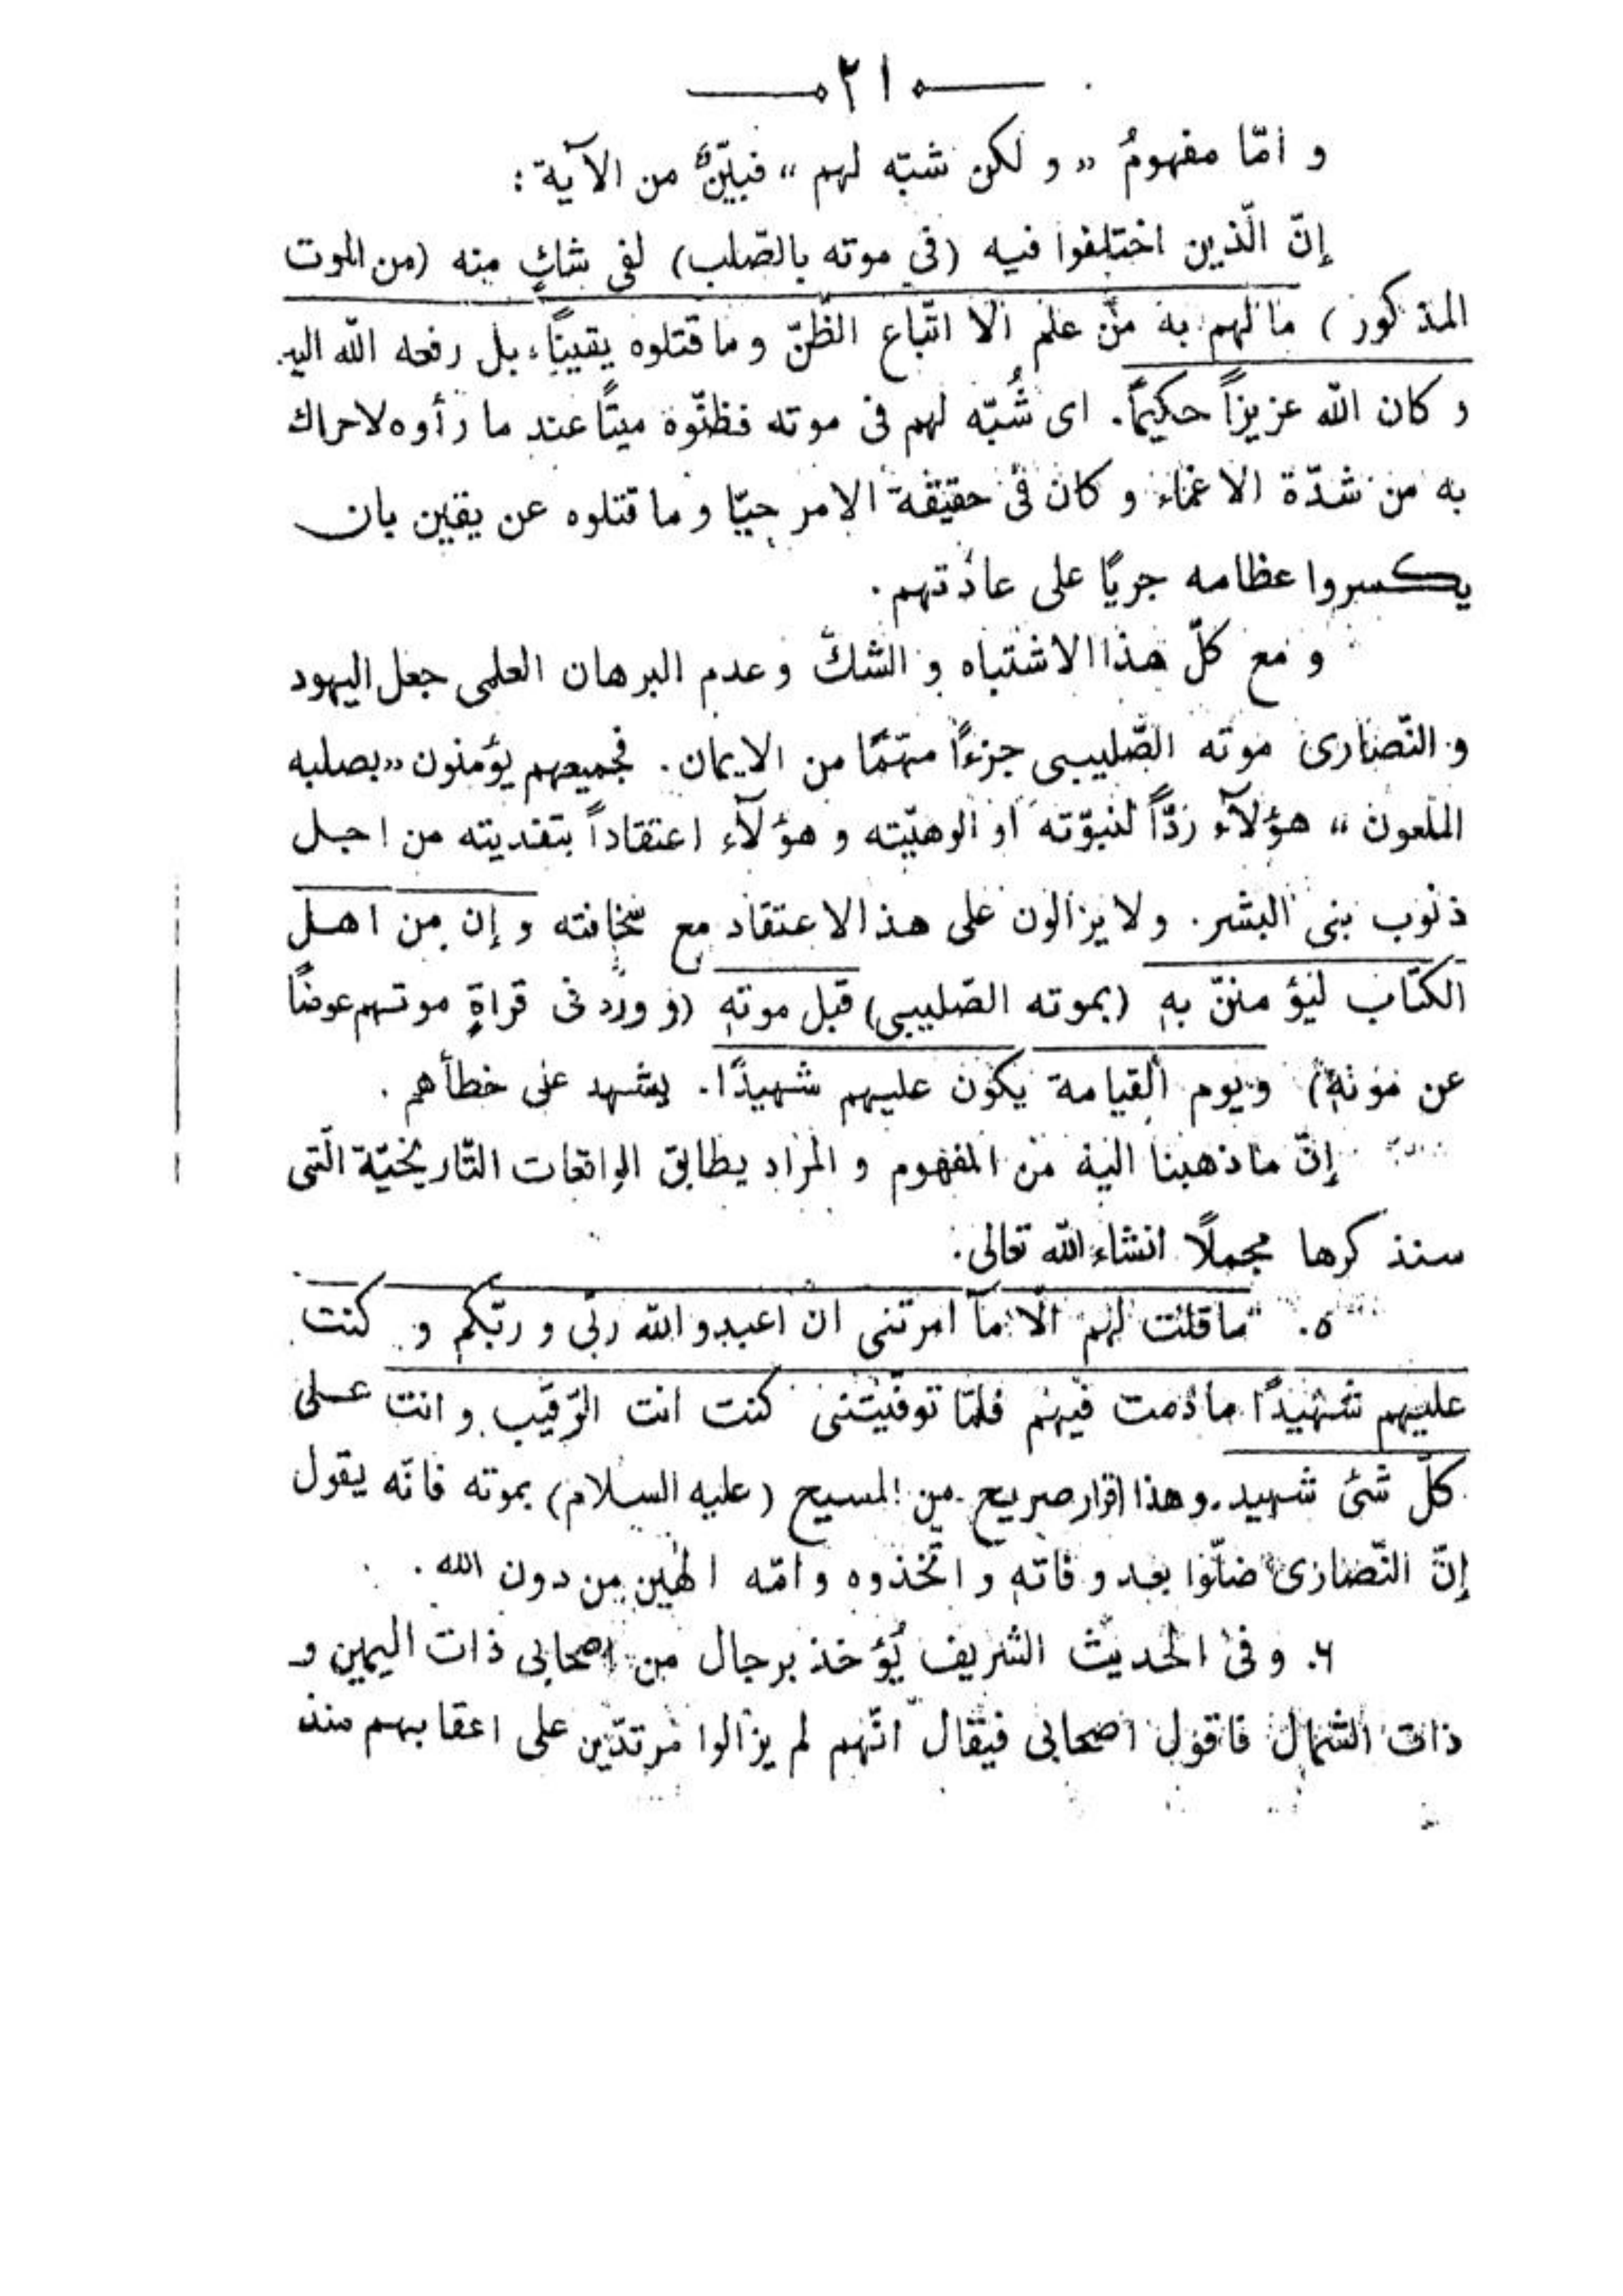 ٢١
و امّا مفهومُ «و لكن شبّه لهم» فبيّنٌ من الآية :
إنّ الّذين اختلفوا فيه (في موته بالصّلب) لفى شكٍ منه (من الموت
المذكور) ما لهم به من علم الا اتّباع الظّنّ وما قتلوه يقيناً، بل رفعه الله اليه
و كان الله عزيزاً حكيماً. اى شُبّه لهم فى موته فظنّوه ميتًا عند ما رأوه لا حراك
به من شدّة الاغماء و كان فى حقيقة الامر حيّا و ما قتلوه عن يقين بان
يكسروا عظامه جريًا على عادتهم.
و مع كلّ هذا الاشتباه و الشكّ و عدم البرهان العلمى جعل اليهود
و النّصارى موته الصّليبى جزءًا متمّمًا من الايمان. فجميعهم يؤمنون «بصلبه
الملعون» هؤلآء ردّاً لنبوّته او الوهيّته و هؤلآء اعتقاداً بتفديته من اجل
ذنوب بنى البشر. ولا يزالون على هذ الاعتقاد مع سخافته و إن من اهل
الكتاب ليؤمننّ بهٖ (بموته الصّليبى) قبل موتهٖ (و ورد فى قراةٍ موتهم عوضًا
عن موتهٖ) ويوم القيامة يكون عليهم شهيدًا. يشهد على خطأهم .
إنّ ما ذهبنا اليه من المفهوم و المراد يطابق الواقعات التّاريخيّة الّتى
سنذكرها مجملًا انشاء الله تعالى.
٥. ما قلت لهم الّا مآ امرتنى ان اعبدو الله ربّى و ربّكم و كنت
عليهم شهيدًا ما دمت فيهم فلمّا توفّيتنى كنت انت الرّقيب و انت على
كلّ شئ شهيد. وهذا اقرار صريح من المسيح (عليه السلام) بموته فانّه يقول
إنّ النّصارى ضلّوا بعد وفاتهٖ و اتّخذوه و امّه الٰهين من دون الله .
٦. و فى الحديث الشريف يُؤخذ برجال من اصحابى ذات اليمين و
ذات الشمال فاقول اصحابى فيقال انّهم لم يزالوا مرتدّين على اعقابهم منذ